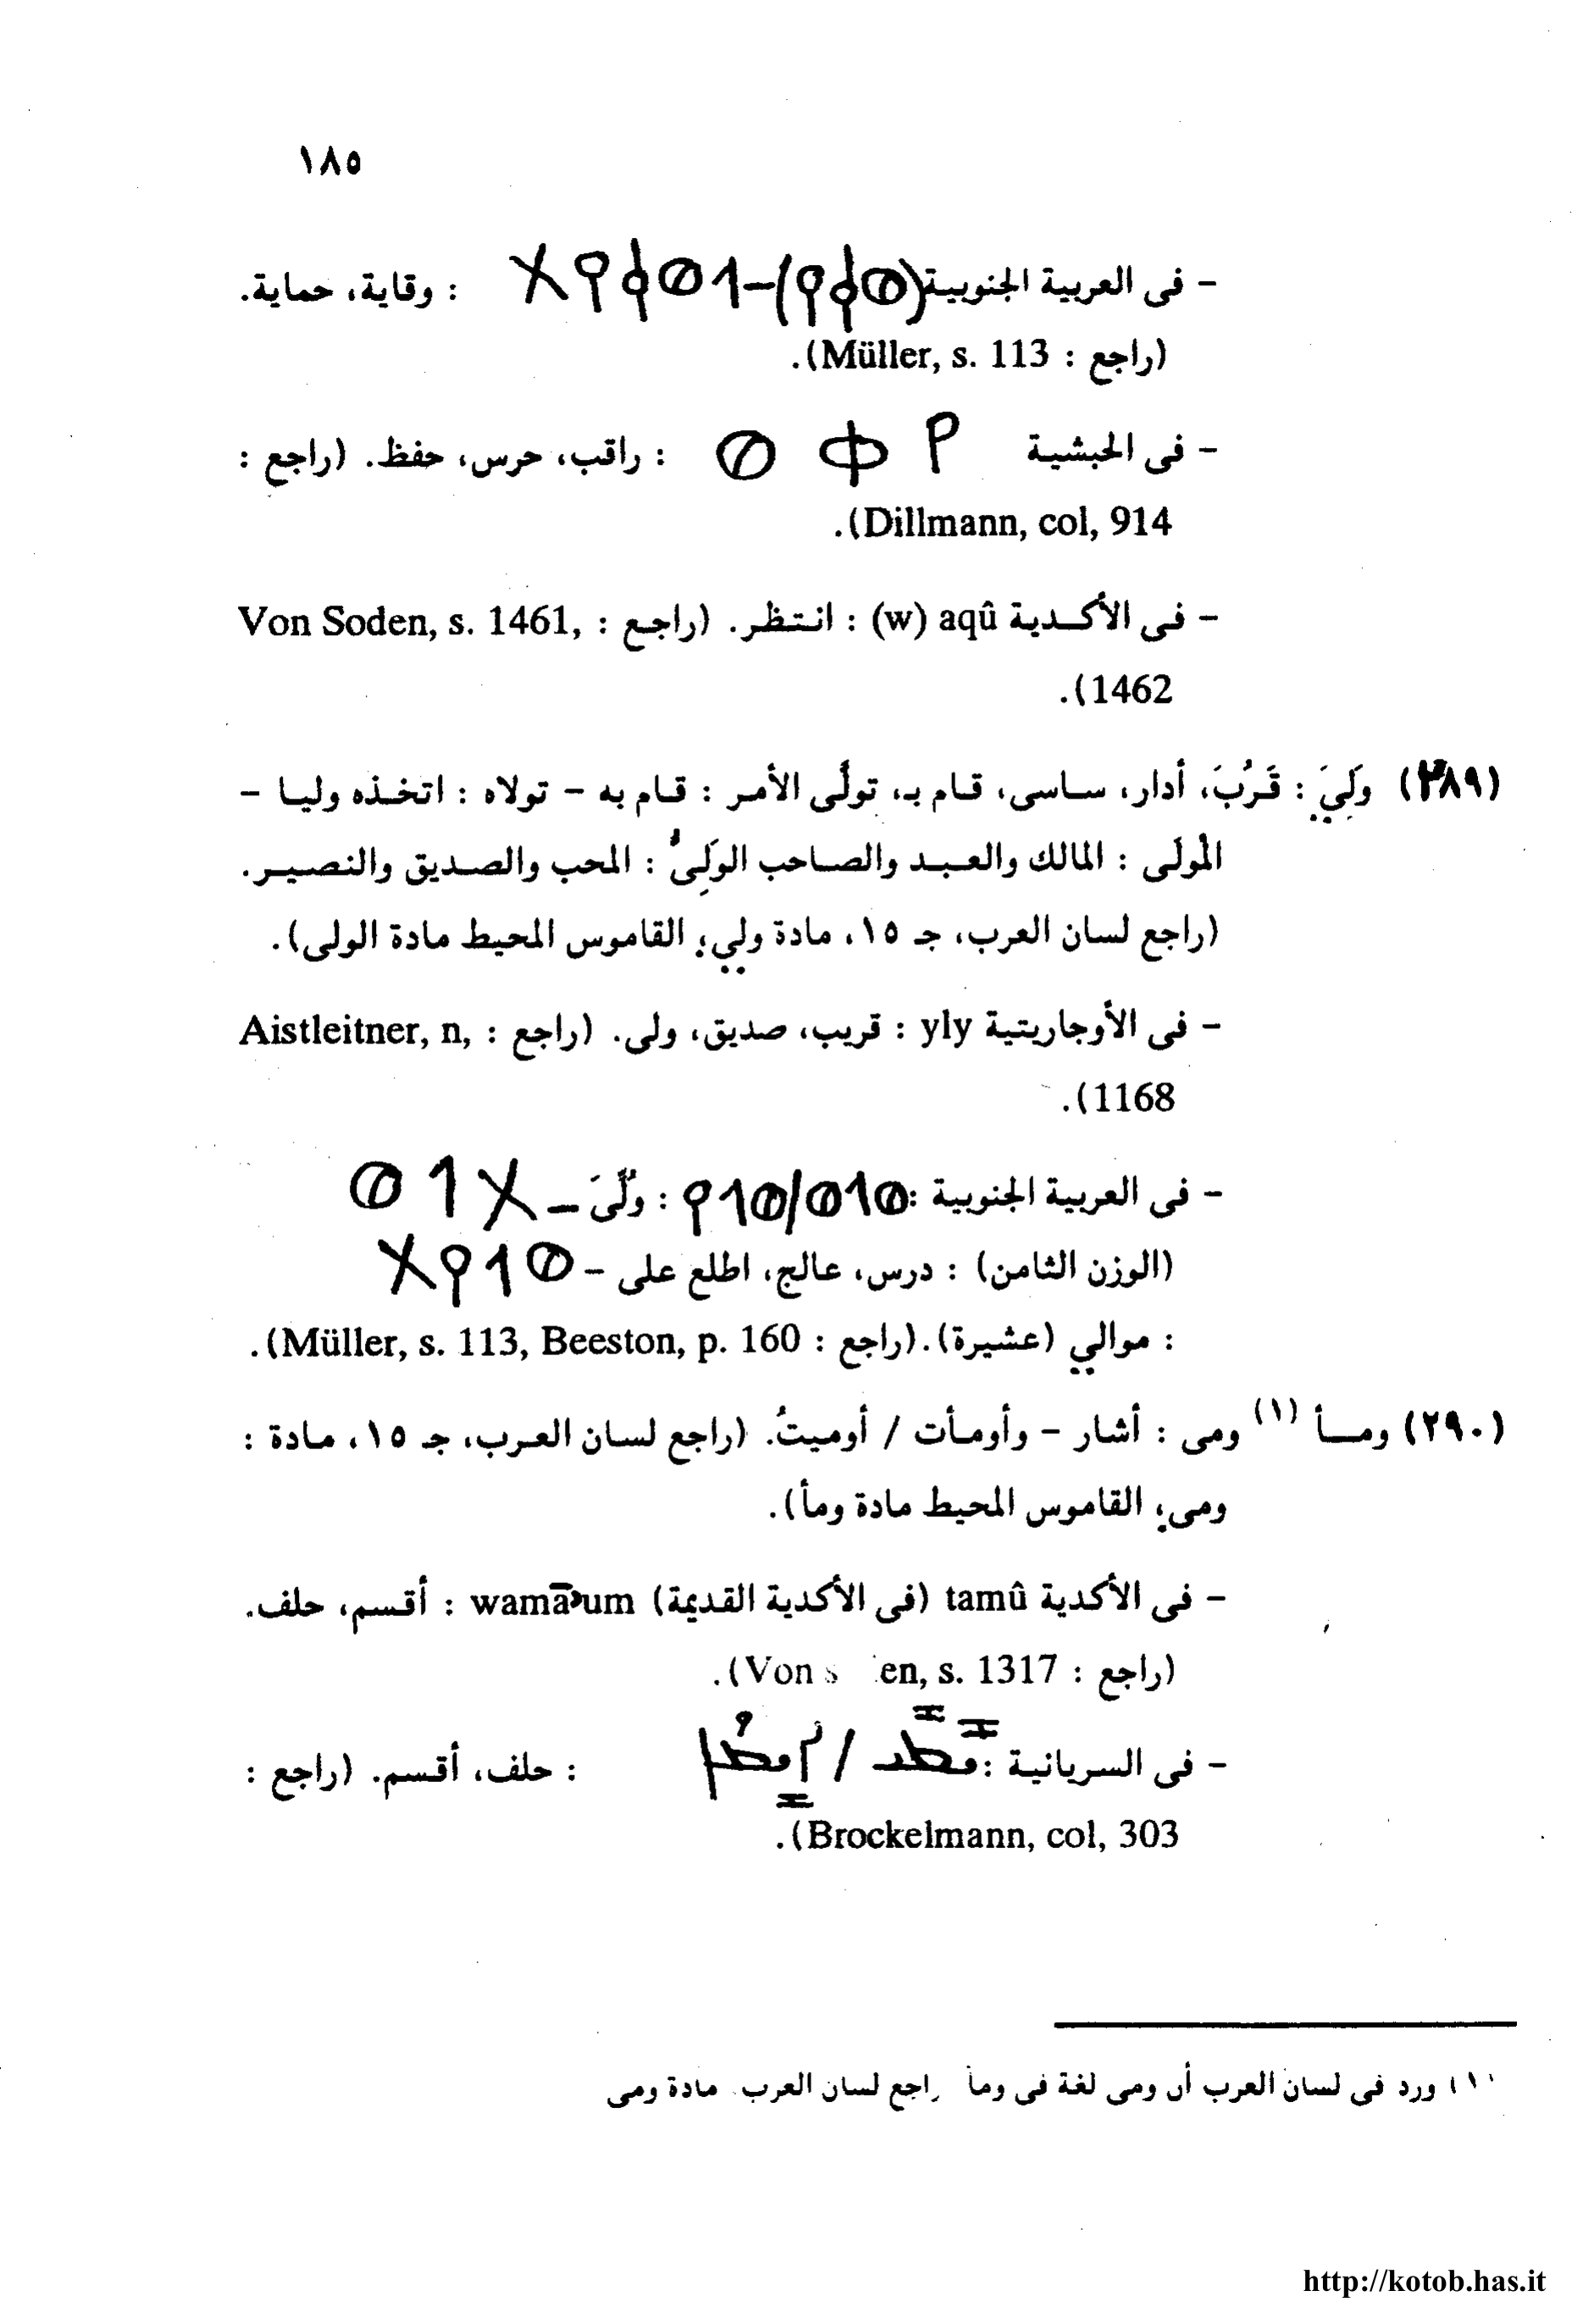 ١٨٥
- فى العربية الجنوبية (𐩥𐩤𐩺) - 𐩡𐩥𐩤𐩺𐩩 : وقاية، حماية.
(راجع : Müller, s. 113).
- فى الحبشية ወቀየ : راقب، حرس، حفظ. (راجع :
Dillmann, col, 914).
- فى الأكدية (w) aqû : انتظر. (راجع : Von Soden, s. 1461,
1462).
(٢٨٩) وَلِيَ : قَرُبَ، أدار، ساسى، قام بـ، تولَّى الأمر : قام به - تولاه : اتخذه وليا -
المْولَى : المالك والعبد والصاحب الوَلِىُّ : المحب والصديق والنصير.
(راجع لسان العرب، جـ ١٥، مادة ولي؛ القاموس المحيط مادة الولى).
- فى الأوجاريتية yly : قريب، صديق، ولى. (راجع : Aistleitner, n,
1168).
- فى العربية الجنوبية : 𐩥𐩡𐩥/𐩥𐩡𐩺 : ولَّىَ - 𐩥𐩡𐩩
(الوزن الثامن) : درس، عالج، اطلع على - 𐩥𐩡𐩺𐩩
: موالي (عشيرة). (راجع : Müller, s. 113, Beeston, p. 160).
(٢٩٠) ومأ (١) ومى : أشار - وأومأت / أوميتُ. (راجع لسان العرب، جـ ١٥، مادة :
ومى؛ القاموس المحيط مادة ومأ).
- فى الأكدية tamû (فى الأكدية القديمة) wamāʾum : أقسم، حلف.
(راجع : Von en, s. 1317).
- فى السريانية : / : حلف، أقسم. (راجع :
Brockelmann, col, 303).
(١) ورد فى لسان العرب أن ومى لغة فى ومأ راجع لسان العرب مادة ومى
http://kotob.has.it